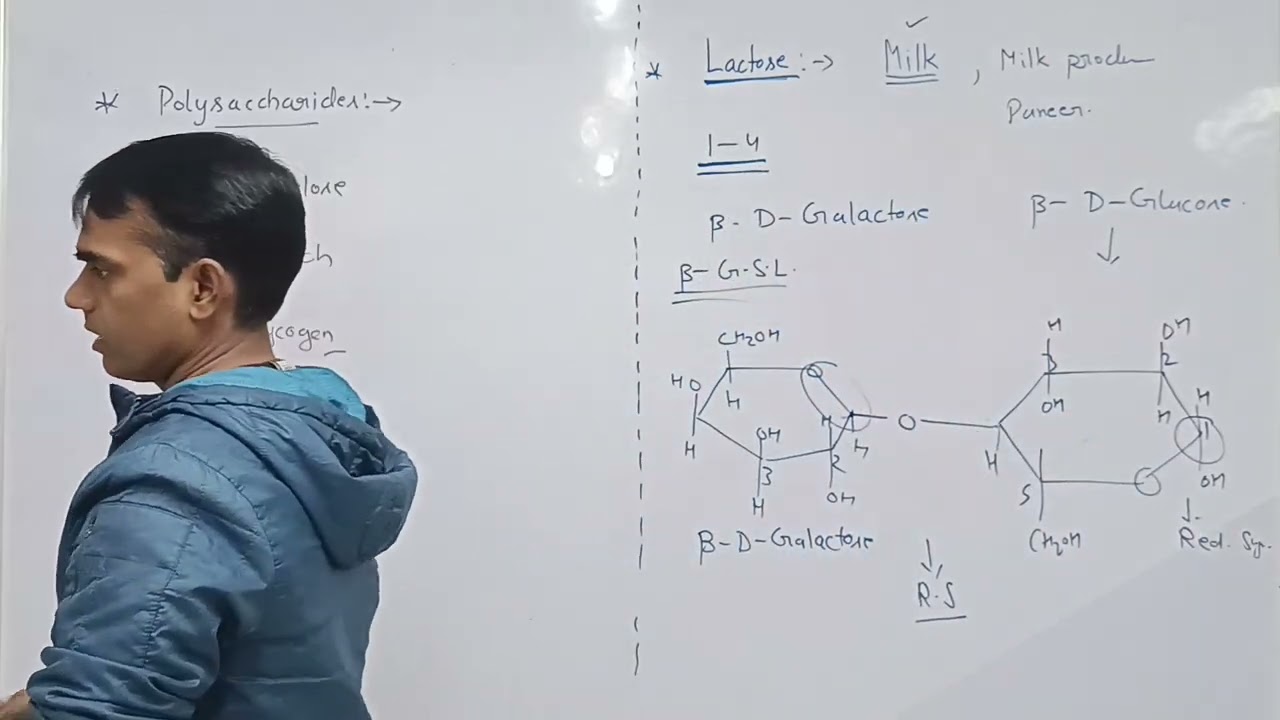 * Polysaccharides:→
lose
ch
ycogen
* Lactose:→ Milk , Milk produ
Paneer.
1-4
β- D-Galactose
β- D-Glucose.
β- G.S.L.
CH2OH
HO
O
H
H
OH
3
H
H
2
OH
H
β-D-Galactose
O
H
3
OH
OH
2
H
H
1
OH
H
5
CH2OH
O
↓
Red. Sy.
↓
R.S